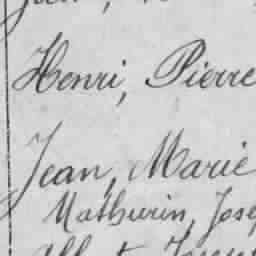 Henri, Pierre
Jean, Marie
Mathurin, Jose